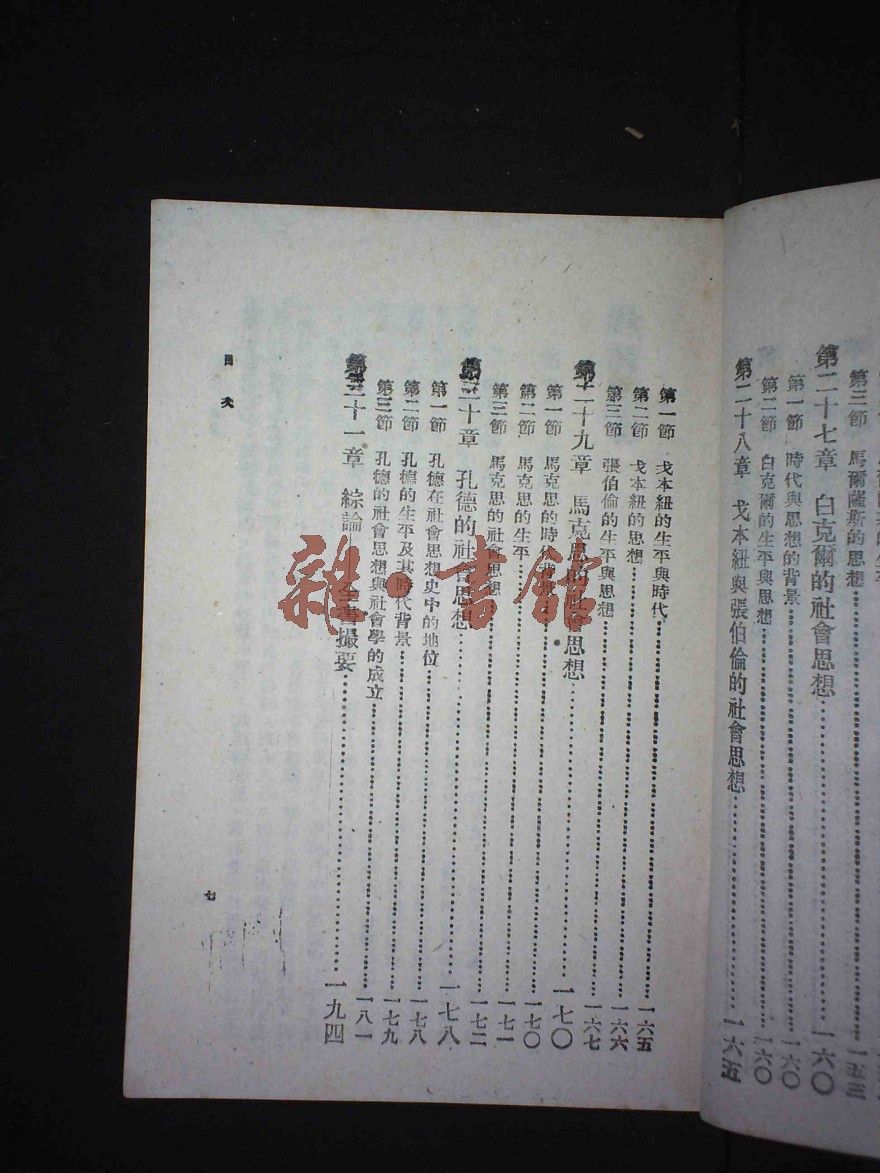 第三節 馬爾薩斯的思想……一五三
第二十七章 白克爾的社會思想……一六〇
第一節 時代與思想的背景……一六〇
第二節 白克爾的生平與思想……一六〇
第二十八章 戈本紐與張伯倫的社會思想……一六五
第一節 戈本紐的生平與時代……一六五
第二節 戈本紐的思想……一六六
第三節 張伯倫的生平與思想……一六七
第二十九章 馬克思的社會思想……一七〇
第一節 馬克思的時代背景……一七〇
第二節 馬克思的生平……一七一
第三節 馬克思的社會思想……一七二
第三十章 孔德的社會思想……一七八
第一節 孔德在社會思想史中的地位……一七八
第二節 孔德的生平及其時代背景……一七九
第三節 孔德的社會思想與社會學的成立……一八一
第三十一章 綜論——全書撮要……一九四
目次
七
雜·書館